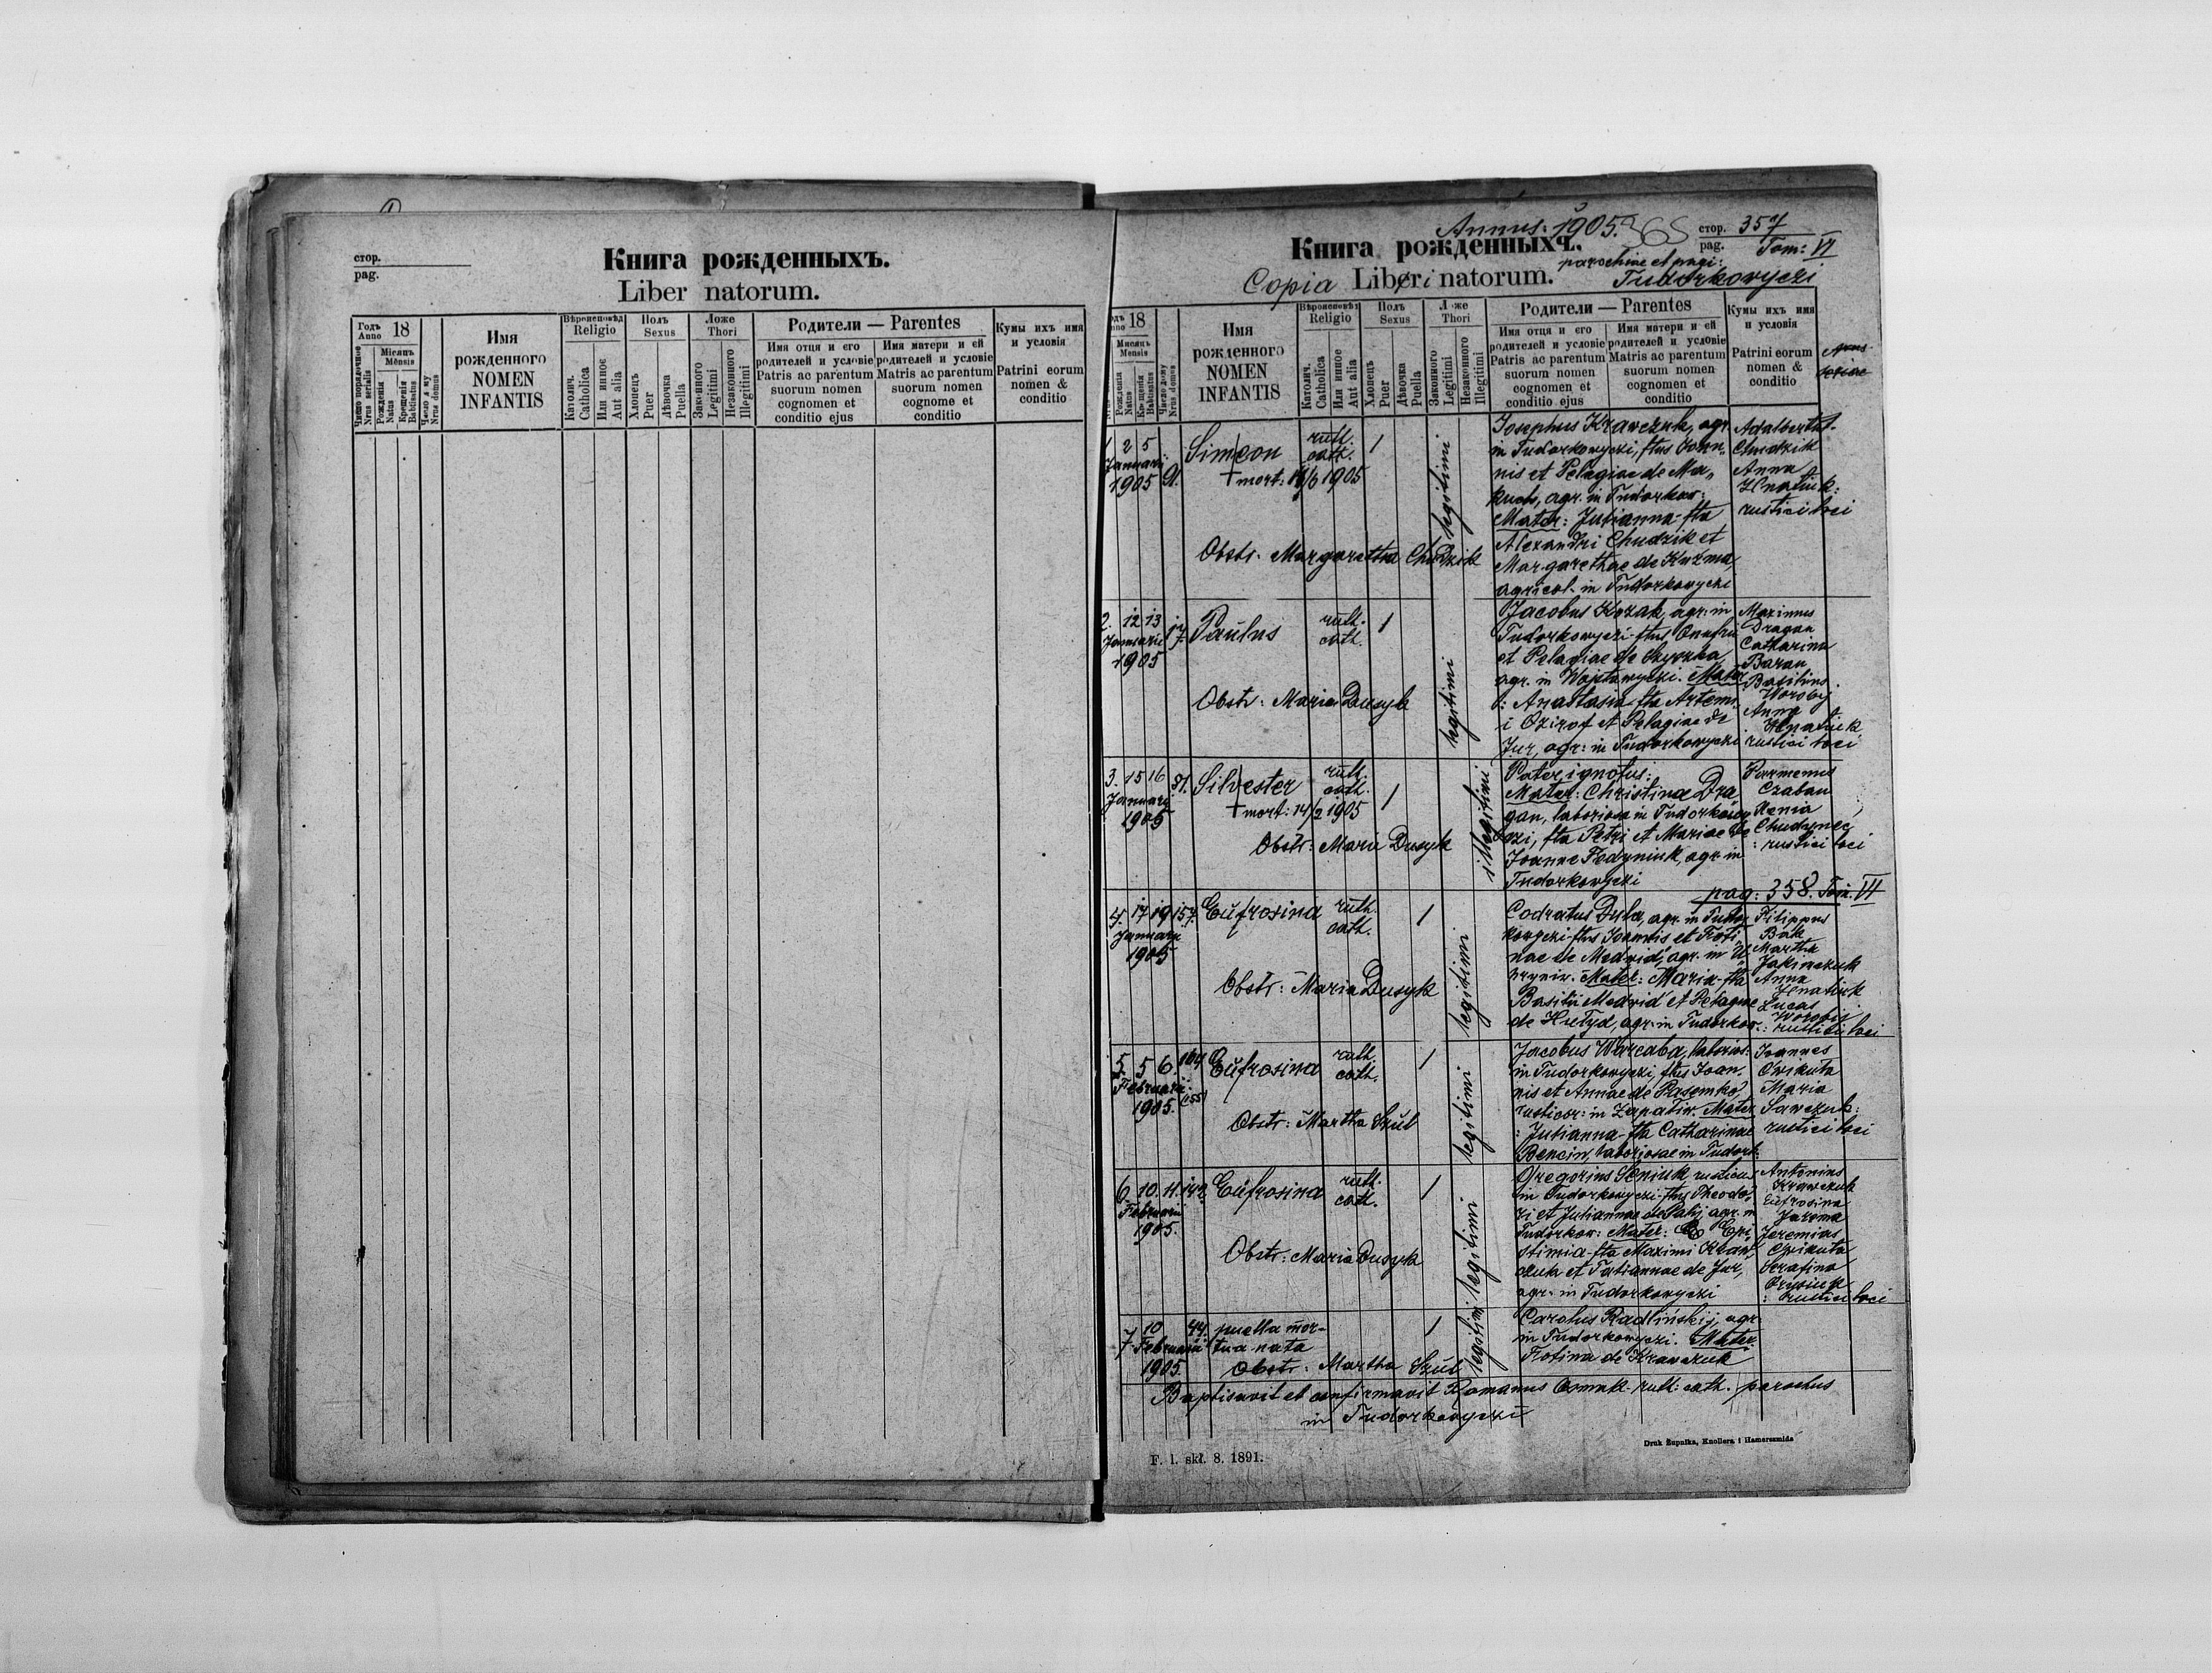 стор.
pag.
Книга рожденныхъ.
Liber natorum.
Годъ 18
Anno
Мѣсяць
Mensis
Число порядочное
Nrus serialis
Рожденія
Natus
Крещенія
Babtisatus
Число дому
Nrus domus
Имя
рожденного
NOMEN
INFANTIS
Вѣроисповѣд
Religio
Католич.
Catholica
Или инное
Aut alia
Полъ
Sexus
Хлопець
Puer
Дѣвочка
Puella
Ложе
Thori
Законного
Legitimi
Незаконного
Illegitimi
Родители — Parentes
Имя отця и его
родителей и условіе
Patris ac parentum
suorum nomen
cognomen et
conditio ejus
Имя матери и ей
родителей и условіе
Matris ac parentum
suorum nomen
cognome et
conditio
Кумы ихъ имя
и условія
Patrini eorum
nomen &
conditio
Annus: 1905. 365
стор. 357
pag. Tom: VI
Книга рожденныхъ.
parochiae et pagi:
Copia Libri natorum. Tudorkowyczi
18
Мѣсяць
Mensis
Рожденія
Natus
Крещенія
Babtisatus
Число дому
Nrus domus
Имя
рожденного
NOMEN
INFANTIS
Вѣроисповѣд
Religio
Католич.
Catholica
Или инное
Aut alia
Полъ
Sexus
Хлопець
Puer
Дѣвочка
Puella
Ложе
Thori
Законного
Legitimi
Незаконного
Illegitimi
Родители — Parentes
Имя отця и его
родителей и условіе
Patris ac parentum
suorum nomen
cognomen et
conditio ejus
Имя матери и ей
родителей и условіе
Matris ac parentum
suorum nomen
cognomen et
conditio
Кумы ихъ имя
и условія
Patrini eorum
nomen &
conditio
1 2 5
Januarii
1905
91.
Simeon
† mort: 1905
ruth.
cath.
1
legitimi
Obstr. Margaretha Chudzik
Josephus Krawczuk, agr.
in Tudorkowyczi, ftus Joan-
nis et Pelagiae de Ma-
kuch, agr. in Tudorkow:
Mater: Julianna fta
Alexandri Chudzik et
Margarethae de Kuzma,
agricol. in Tudorkowyczi
Adalbertus
Chudzik
Anna
Hnatiuk:
rustici loci
2. 12 13
Januarii
1905
Paulus
ruth.
cath.
1
legitimi
Obstr: Maria Dusyk
Jacobus Kozak, agr. in
Tudorkowyczi ftus Onufrii
et Pelagiae de
agr. in Wojslawyczi. Mater
: Anastasia fta Artemi
i Ozirof et Pelagiae de
Jur, agr: in Tudorkowyczi
Maximus
Dragan
Catharina
Baran
Basilius
Worobij
Anna
Hnatiuk
rustici loci
3. 15 16
Januarii
1905
81.
Silvester
† mort: 14/2 1905
ruth.
cath.
1
illegitimi
Obstr: Maria Dusyk
Pater ignotus:
Mater: Christina Dra
gan, laboriosa in Tudorkowy
czi, fta Petri et Mariae de
Joanne Fedyniuk, agr. in
Tudorkowyczi
Parmenus
Czaban
Xenia
Chudynec
: rustici loci
pag: 358. Tom. VI
4. 17 19 157.
Januarii
1905
Eufrosina
ruth.
cath.
1
legitimi
Obstr: Maria Dusyk
Codratus Dyla, agr. in Tudor
kowyczi ftus Joannis et Foti
nae de Medvid, agr. in U
hryniw. Mater: Maria fta
Basilii Medvid et Pelagiae
de Hulyd, agr. in Tudorkow.
Filippus
Bak
Martha
Jakimczuk
Anna
Hnatiuk
Lucas
Worobij
: rustici loci
5. 5 6. 164
Februarii
1905. (155)
Eufrosina
ruth.
cath.
1
legitimi
Obstr: Martha Szul
Jacobus Warcaba, laborios:
in Tudorkowyczi, ftus Joan-
nis et Annae de Pasemko
rusticor: in Zapatiw. Mater
: Julianna fta Catharinae
Bencin, laboriosae in Tudork:
Joannes
Maria
Sawczuk:
rustici loci
6. 10. 11. 142.
Februarii
1905.
Eufrosina
ruth.
cath.
1
legitimi
Obstr: Maria Dusyk
Gregorius Seniuk, rusticus
in Tudorkowyczi ftus Theodo
ri et Juliannae de Palij, agr. in
Tudorkow: Mater: Epi
stimia fta Maximi Kraw
czuk et Tatiannae de Jur,
agr. in Tudorkowyczi
Antonius
Krawczuk
Eufrosina
Jarema
Jeremias
Serafina
: rustici loci
7. 10
Februarii
1905.
44.
puella mor-
tua nata
1
legitimi
Obstr: Martha Szul
Carolus Radliński, agr.
in Tudorkowyczi. Mater
Fotina de Krawczuk
Baptisavit et confirmavit Romanus ruth: cath. parochus
in Tudorkowyczi
F. 1. skł. 8. 1891.
Druk Żupnika, Knollera i Hamerszmida